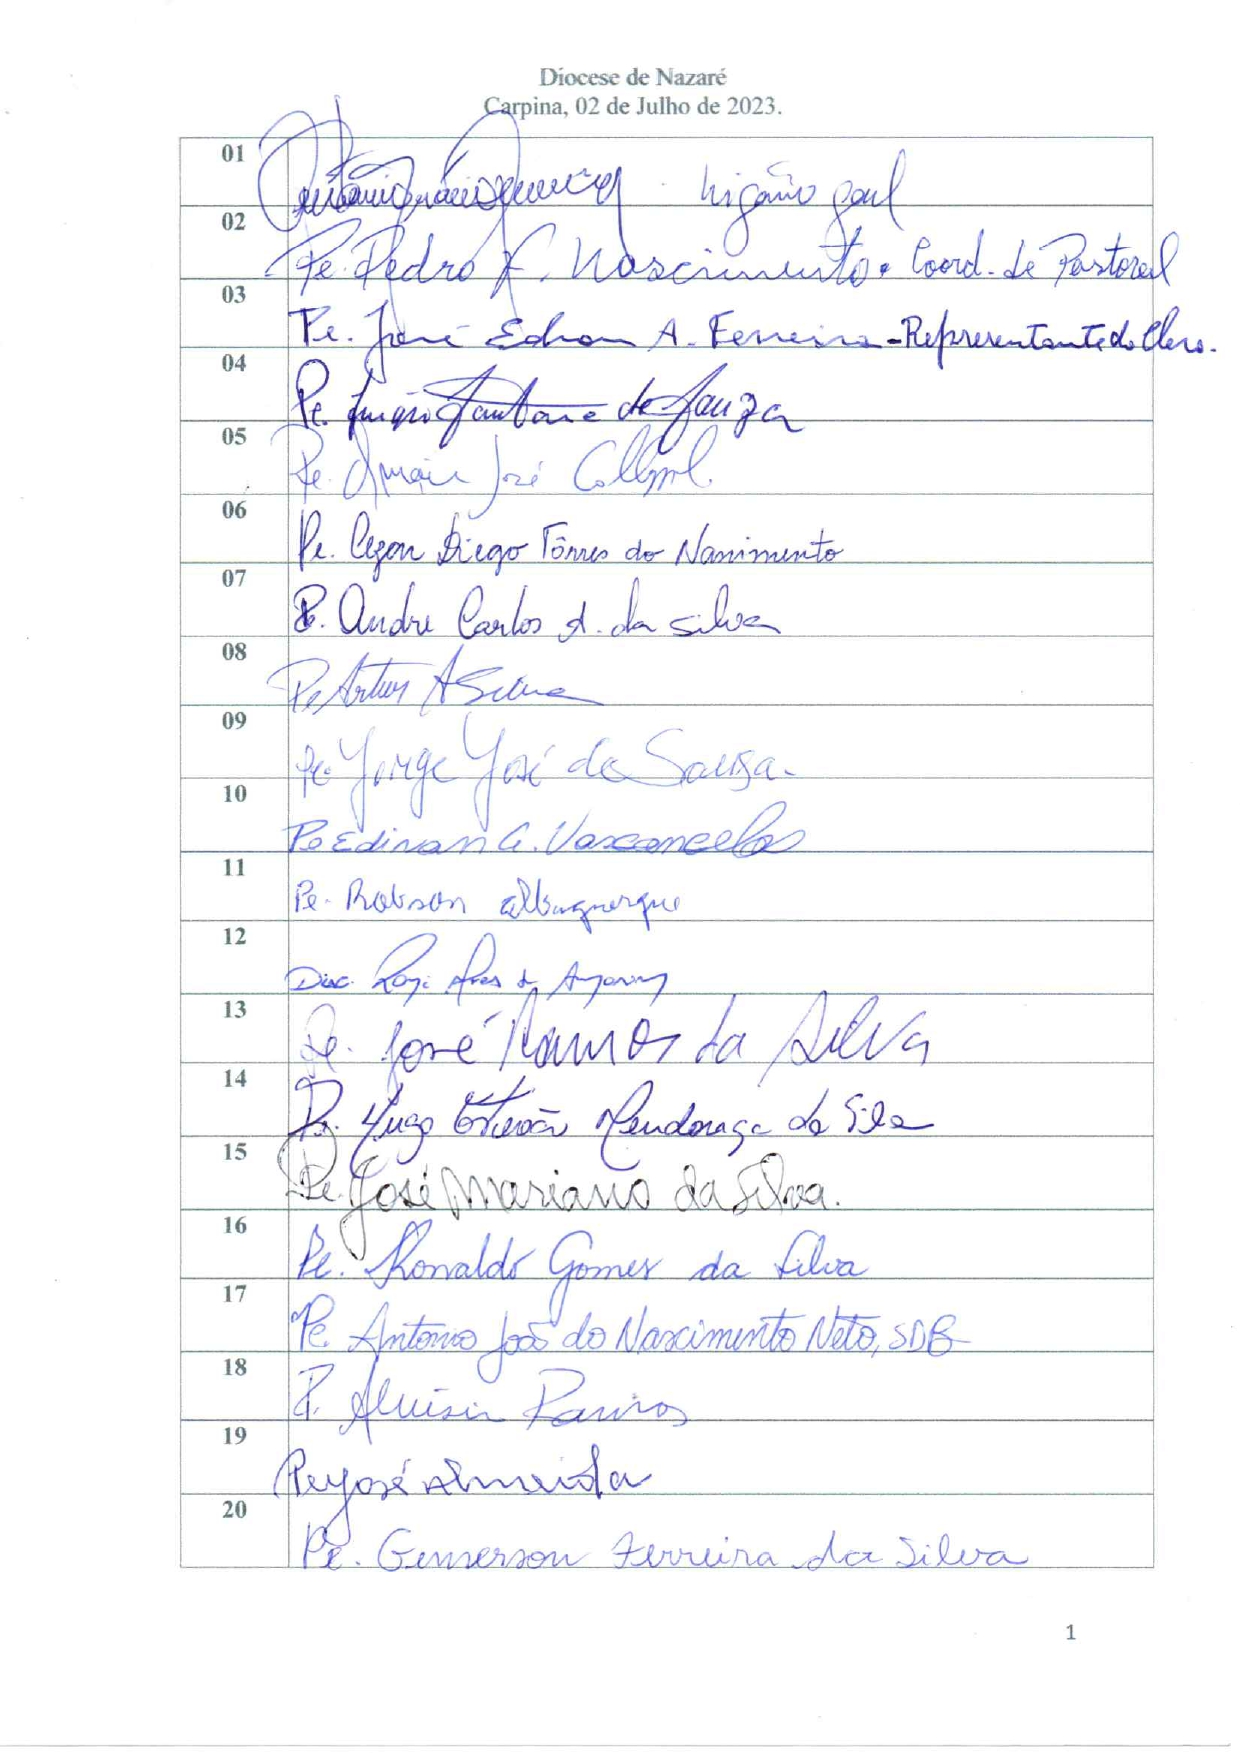 Diocese de Nazaré
Carpina, 02 de Julho de 2023.
01 Vigário Geral
02 Pe. Pedro F. Nascimento. Coord. de Pastoral
03 Pe. José Edson A. Ferreira - Representante do Clero.
04 Pe. de Souza
05 Pe. José
06 Pe. Diego Tôrres do Nascimento
07 P. André Carlos A. da Silva
08 Pe Artur A Silva
09 Pe Jorge José de Souza.
10 Pe Edivan G. Vasconcelos
11 Pe. Robson Albuquerque
12 Diac.
13 Pe. José Ramos da Silva
14 Pe. Hugo Estevão Mendonça da Silva
15 Pe. José Mariano da Silva.
16 Pe. Ronaldo Gomes da Silva
17 Pe. Antonio João do Nascimento Neto, SDB
18 P. Aluisio Ramos
19 Pe José Almeida
20 Pe. Gemerson Ferreira da Silva
1